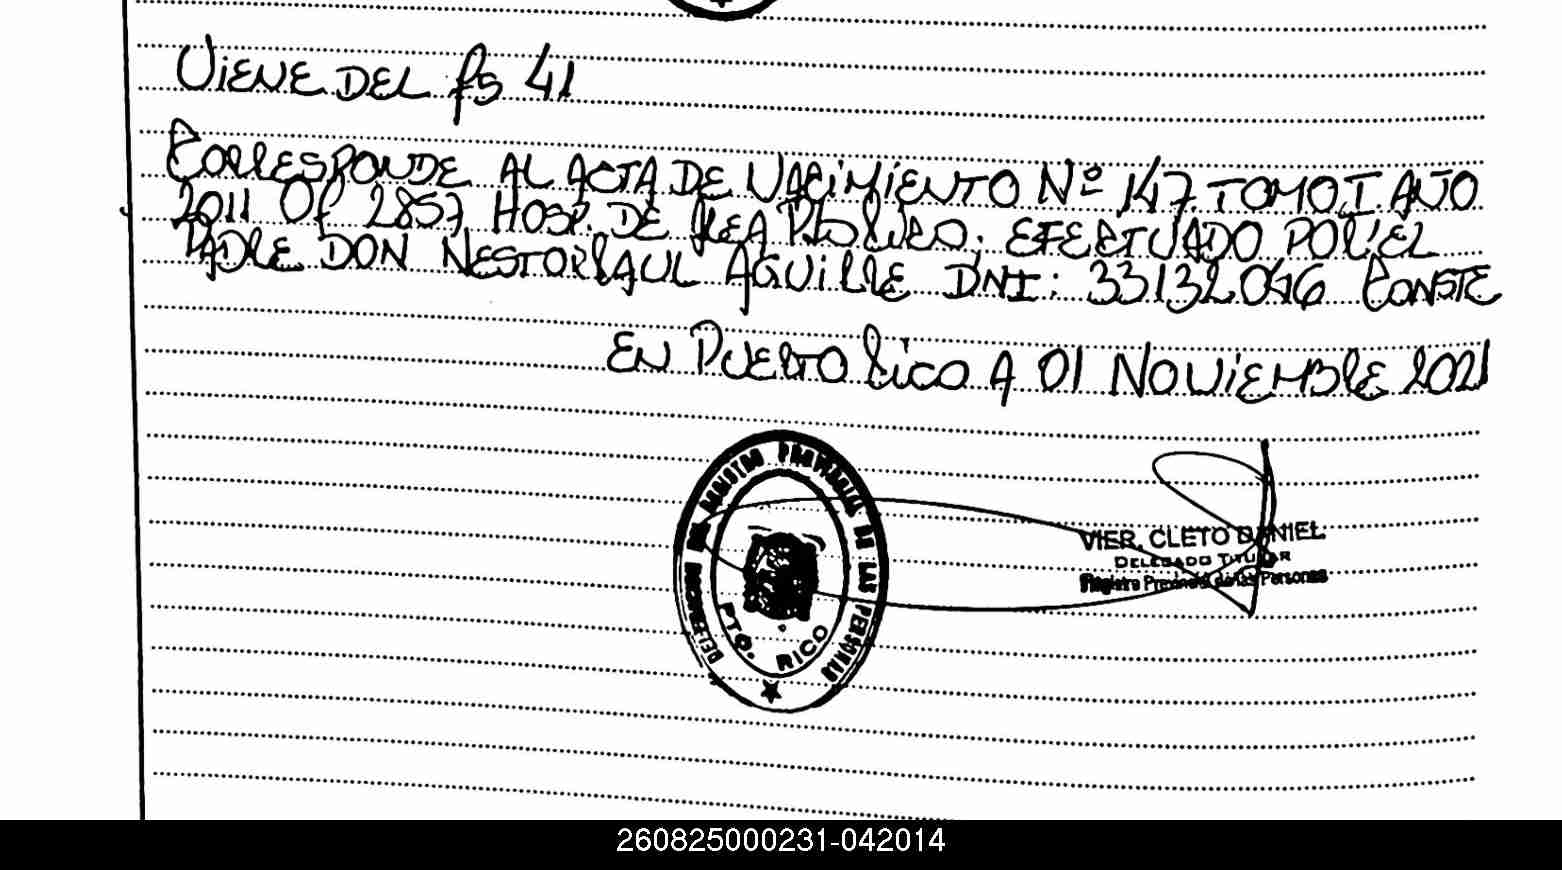 VIENE DEL fs 41
CORRESPONDE AL ACTA DE NACIMIENTO Nº 147 TOMO I AÑO
2011 Of 2857 HOSP. DE AREA Pto RICO. EFECTUADO POR EL
PADRE DON NESTOR RAUL AGUIRRE DNI: 33132046 CONSTE
EN PUERTO RICO A 01 NOVIEMBRE 2021
DEL REGISTRO PROVINCIAL DE LAS PERSONAS
PTO. RICO
VIER, CLETO DANIEL
DELEGADO TITULAR
Registro Provincial de las Personas
260825000231-042014